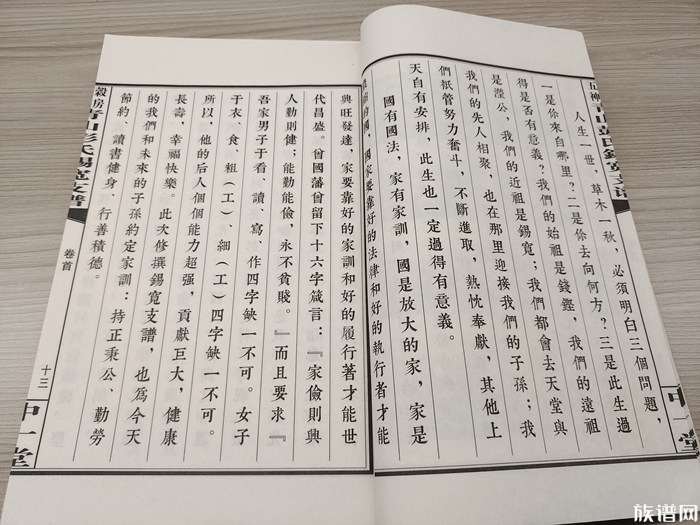 人生一世，草木一秋，必須明白三個問題，
一是你來自哪里？二是你去向何方？三是此生過
得是否有意義？我們的始祖是錢鏗，我們的遠祖
是瀅公，我們的近祖是錫寬；我們都會去天堂與
我們的先人相聚，也在那里迎接我們的子孫；我
們祇管努力奮斗，不斷進取，熱忱奉獻，其他上
天自有安排，此生也一定過得有意義。
國有國法，家有家訓，國是放大的家，家是
國，國家要靠好的法律和好的執行者才能
興旺發達，家要靠好的家訓和好的履行著才能世
代昌盛。曾國藩曾留下十六字箴言：『家儉則興
人勤則健；能勤能儉，永不貧賤。』而且要求『
吾家男子于看、讀、寫、作四字缺一不可。女子
于衣、食、粗（工）、細（工）四字缺一不可。
所以，他的后人個個能力超强，貢獻巨大，健康
長壽，幸福快樂。此次修撰錫寬支譜，也爲今天
的我們和未來的子孫約定家訓：持正秉公、勤勞
節約、讀書健身、行善積德。
穀房青山彭氏錫寬支譜
卷首
十三
中一堂
族谱网